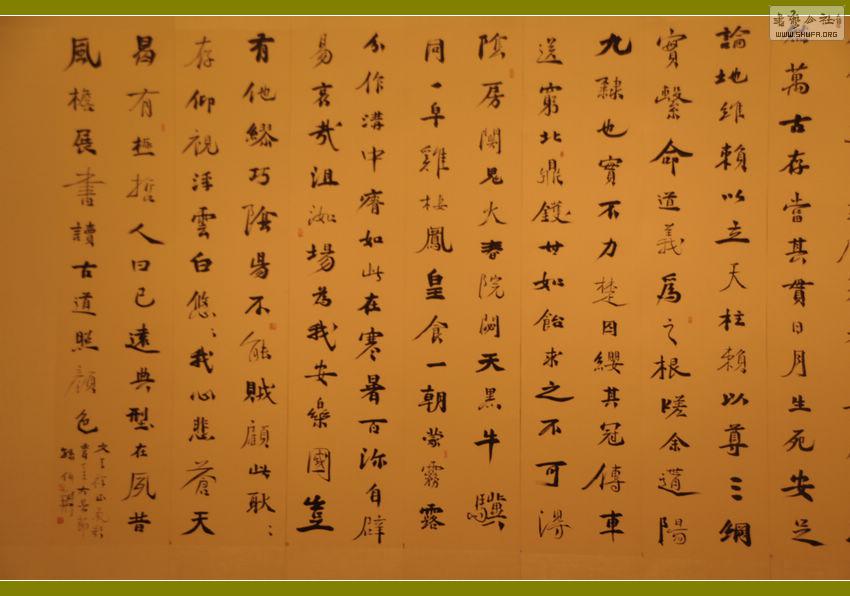 萬古存當其貫日月生死安足
論地維賴以立天柱賴以尊三綱
實繫命道義爲之根嗟余遘陽
九隸也實不力楚囚纓其冠傳車
送窮北鼎鑊甘如飴求之不可得
陰房闃鬼火春院閟天黑牛驥
同一皁雞栖鳳皇食一朝蒙霧露
分作溝中瘠如此在寒暑百沴自辟
易哀哉沮洳場為我安樂國豈
有他繆巧陰陽不能賊顧此耿〻
存仰視浮雲白悠〻我心悲蒼天
曷有極哲人日已遠典型在夙昔
風檐展書讀古道照顏色
文天祥正氣歌
書法公社
WWW.SHUFA.ORG